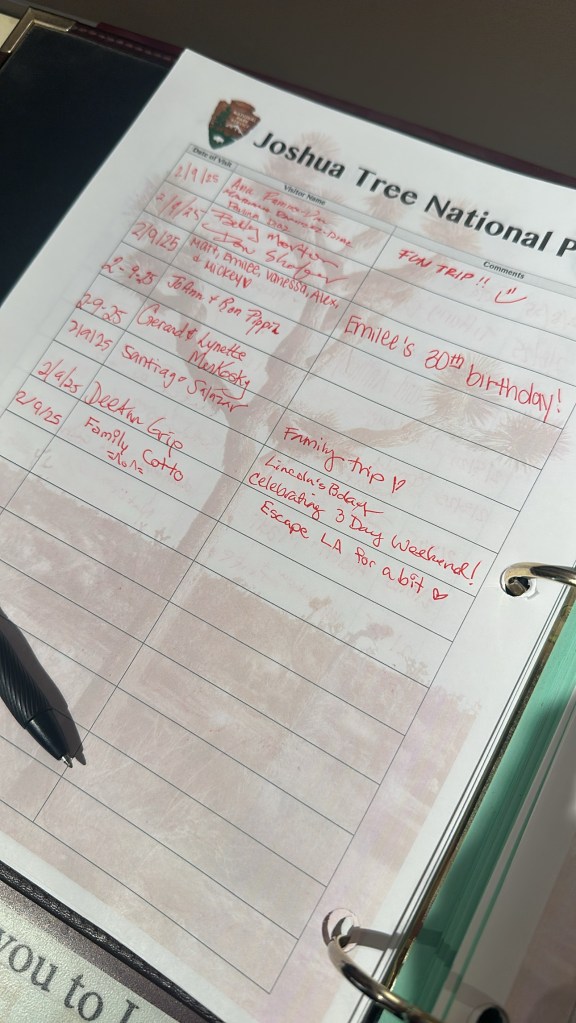 Joshua Tree National P
Date of Visit Visitor Name Comments
2/9/25
2/9/25 Becky FUN TRIP!!
2/9/25 Matt, Emilee, Vanessa, Alex,
& Mickey Emilee's 30th birthday!
2-9-25 JoAnn & Ron
2-9-25 Gerard & Lynette
2/9/25 Santiago Salazar Family trip
Lincoln's Bday
2/9/25 Celebrating 3 Day Weekend!
2/9/25 Family Cotto Escape LA for a bit
you to